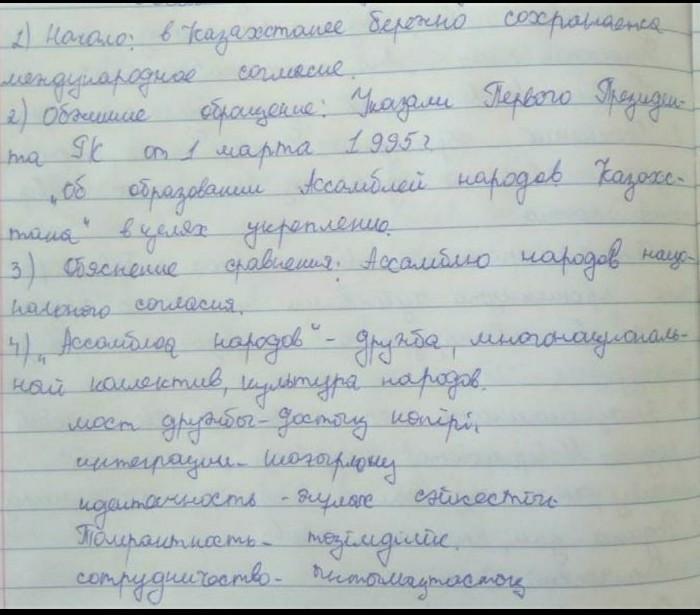 1) Начало: в Казахстанее бережно сохраняется
международное согласие.
2) Обжшие обращение: Указали Первого Президен-
та РК от 1 марта 1995г
„Об образовании Ассамблей народов Казахс-
тана" в целях укреплению.
3) Обяснение сравнения: Ассамблю народов наци-
нального согласия.
4) „Ассамблея народов" - дружба, многонациональ-
ной коллектив, культура народов.
мост дружбы - достық көпірі,
интеграции -
идентанность - сәйкестік
Толирантность - төзімділік.
сотрудничество - ынтымақтастық